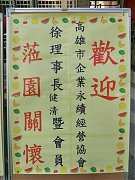 歡迎
高雄市企業永續經營協會
徐理事長健清暨會員
蒞園關懷